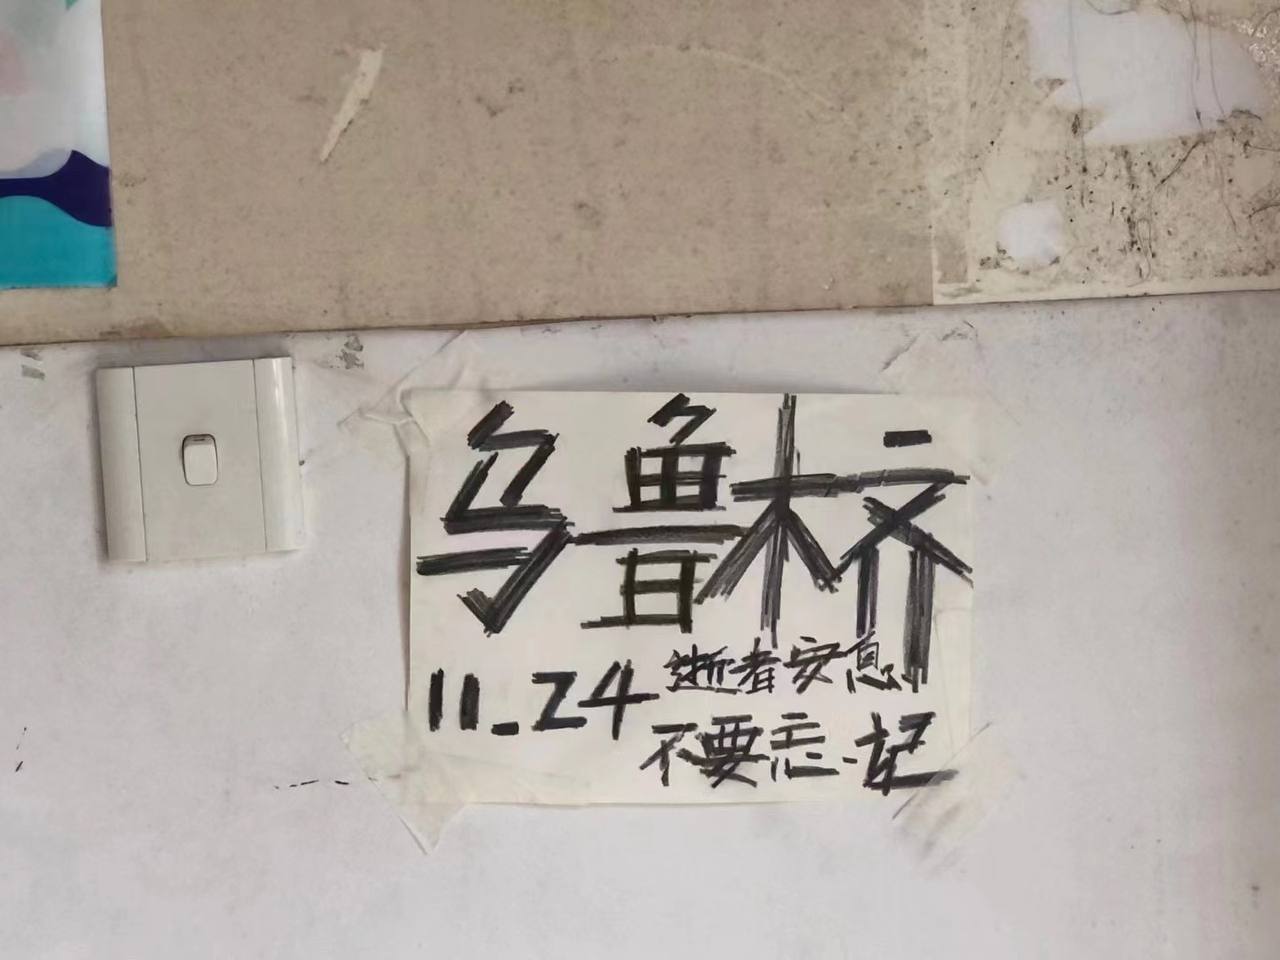 乌鲁木齐
11.24 逝者安息
不要忘记